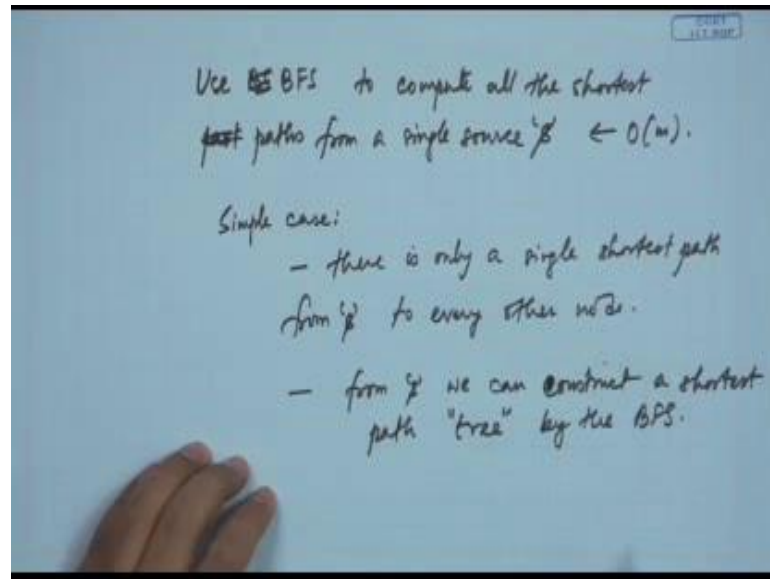 CCET
I.I.T. KGP
Use BFS to compute all the shortest
paths from a single source 's' ← O(m).
Simple case:
– there is only a single shortest path
from 's' to every other node.
– from 's' we can construct a shortest
path "tree" by the BFS.